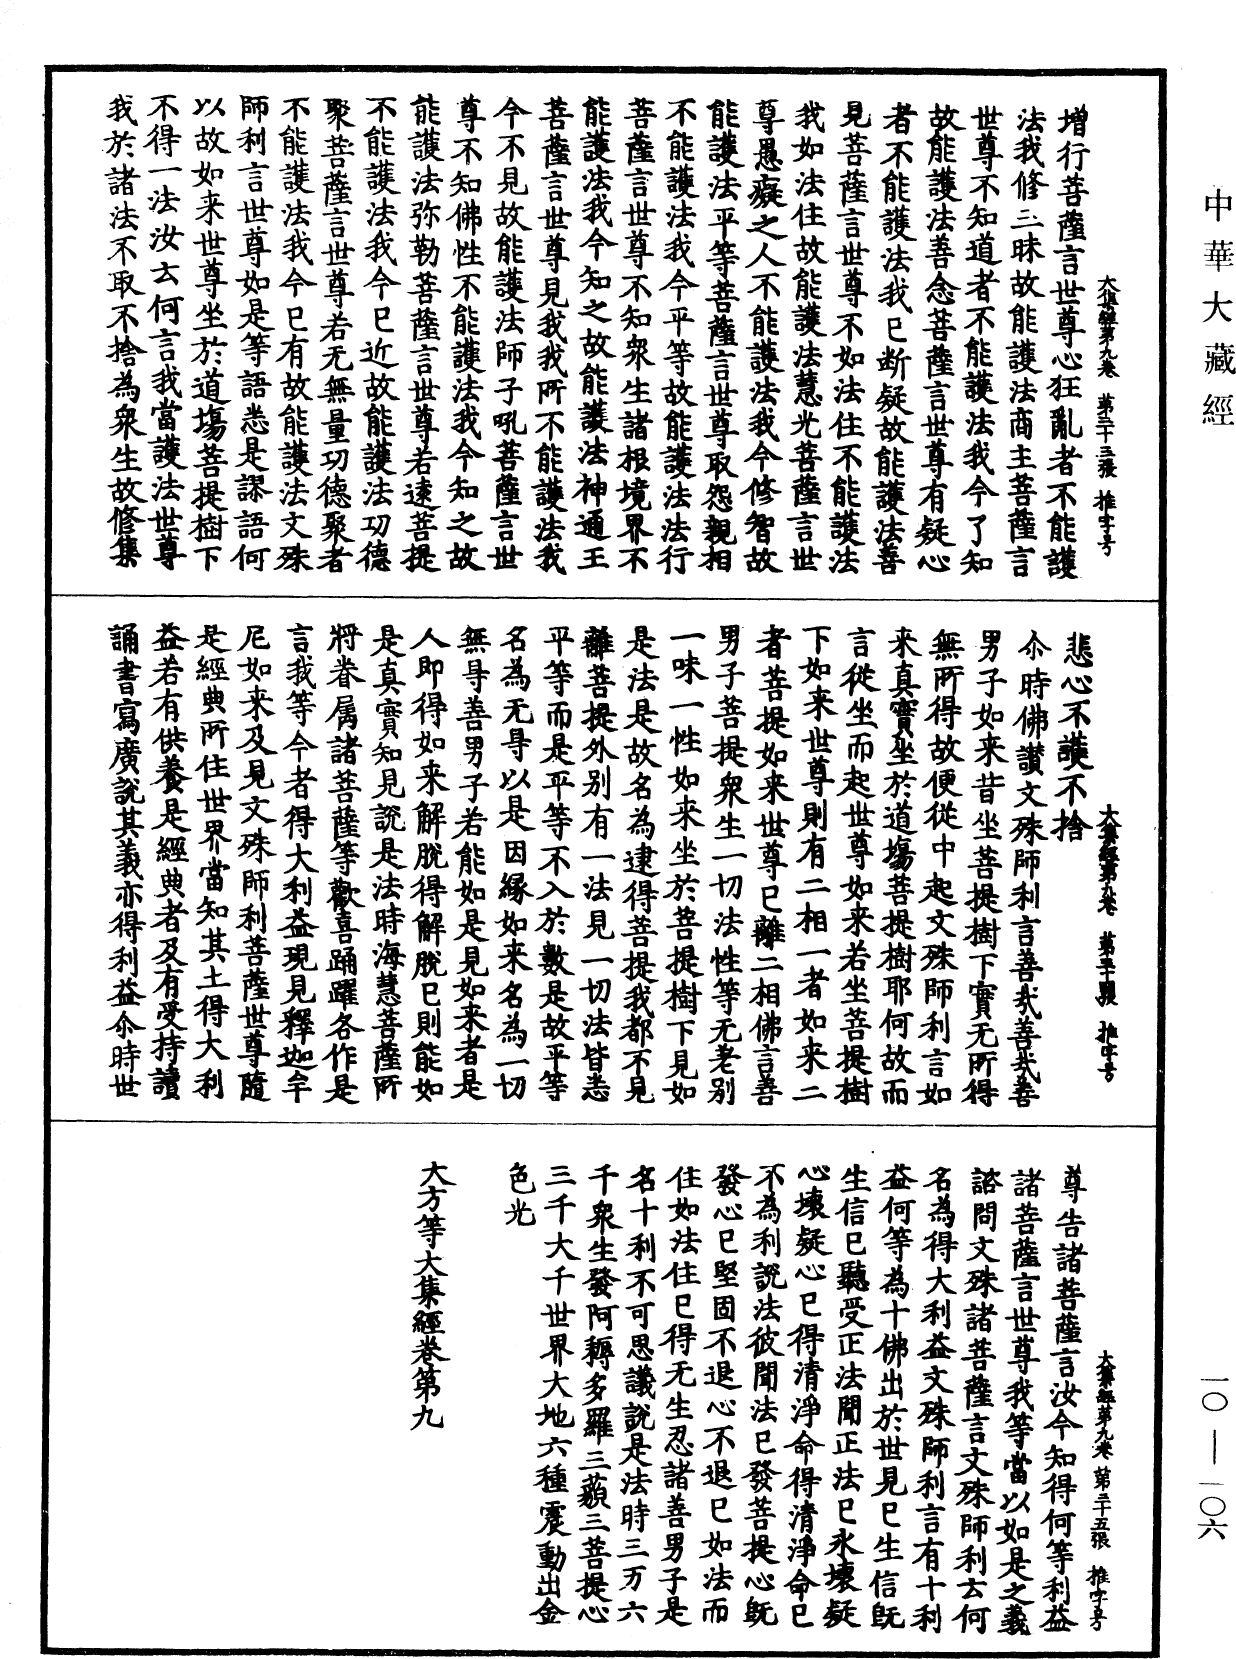 中華大藏經
大集經第九卷 第三十三張 推字号
增行菩薩言世尊心狂亂者不能護
法我修三昧故能護法商主菩薩言
世尊不知道者不能護法我今了知
故能護法善念菩薩言世尊有疑心
者不能護法我已斷疑故能護法善
見菩薩言世尊不如法住不能護法
我如法住故能護法慧光菩薩言世
尊愚癡之人不能護法我今修智故
能護法平等菩薩言世尊取怨親相
不能護法我今平等故能護法法行
菩薩言世尊不知衆生諸根境界不
能護法我今知之故能護法神通王
菩薩言世尊見我我所不能護法我
今不見故能護法師子吼菩薩言世
尊不知佛性不能護法我今知之故
能護法弥勒菩薩言世尊若逺菩提
不能護法我今已近故能護法功德
聚菩薩言世尊若无無量功德聚者
不能護法我今已有故能護法文殊
師利言世尊如是等語悉是謬語何
以故如来世尊坐於道場菩提樹下
不得一法汝云何言我當護法世尊
我於諸法不取不捨為衆生故修集
大集經第九卷 第三十四張 推字号
悲心不護不捨
尒時佛讃文殊師利言善㢤善㢤善
男子如来昔坐菩提樹下實无所得
無所得故便從中起文殊師利言如
来真實坐於道場菩提樹耶何故而
言從坐而起世尊如来若坐菩提樹
下如来世尊則有二相一者如来二
者菩提如来世尊已離二相佛言善
男子菩提衆生一切法性等无差别
一味一性如来坐於菩提樹下見如
是法是故名為逮得菩提我都不見
離菩提外别有一法見一切法皆悉
平等而是平等不入於數是故平等
名為无㝵以是因縁如来名為一切
無㝵善男子若能如是見如来者是
人即得如来解脫得解脫已則能如
是真實知見說是法時海慧菩薩所
將眷属諸菩薩等歡喜踊躍各作是
言我等今者得大利益現見釋迦牟
尼如来及見文殊師利菩薩世尊隨
是經典所住世界當知其土得大利
益若有供養是經典者及有受持讀
誦書寫廣說其義亦得利益尒時世
大集經第九卷 第三十五張 推字号
尊告諸菩薩言汝今知得何等利益
諸菩薩言世尊我等當以如是之義
諮問文殊諸菩薩言文殊師利云何
名為得大利益文殊師利言有十利
益何等為十佛出於世見已生信既
生信已聽受正法聞正法已永壞疑
心壞疑心已得清淨命得清淨命已
不為利說法彼聞法已發菩提心既
發心已堅固不退心不退已如法而
住如法住已得无生忍諸善男子是
名十利不可思議說是法時三万六
千衆生發阿耨多羅三藐三菩提心
三千大千世界大地六種震動出金
色光
大方等大集經卷第九
一〇—一〇六